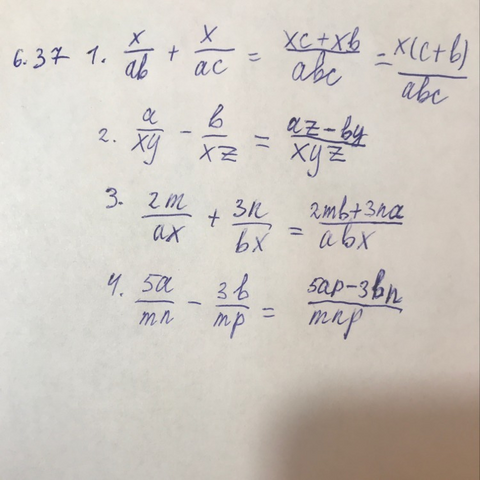 6.37 1. x/ab + x/ac = xc+xb/abc = x(c+b)/abc
2. a/xy - b/xz = az-by/xyz
3. 2m/ax + 3n/bx = 2mb+3na/abx
4. 5a/mn - 3b/mp = 5ap-3bn/mnp